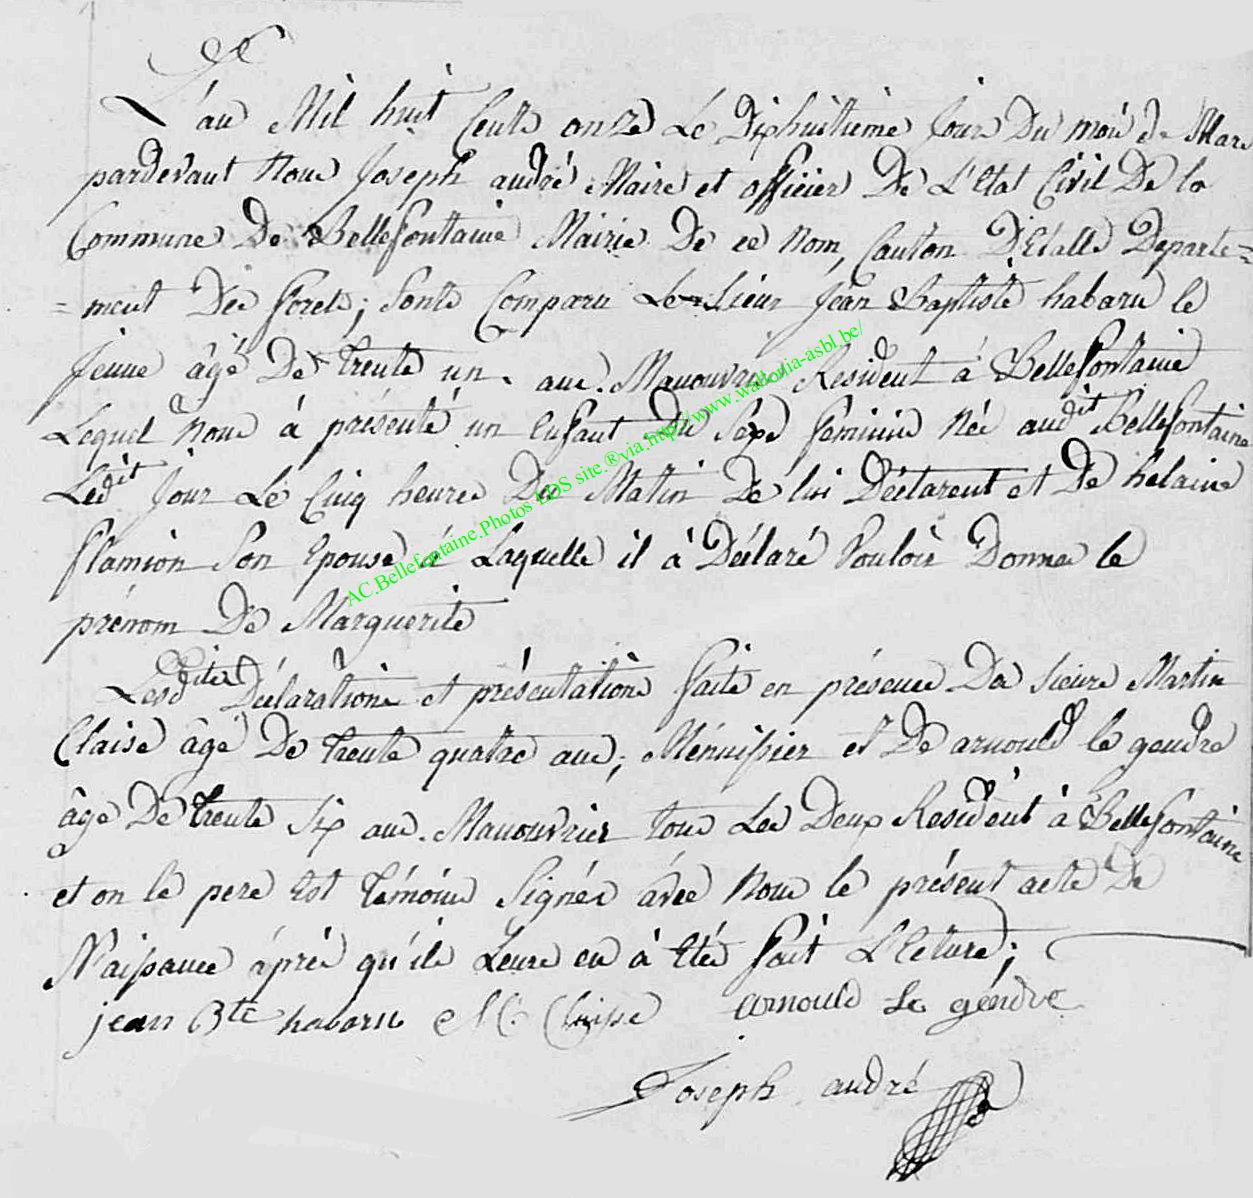 L'an Mil huit Cents onze Le Dixhuitième Jour Du mois de Mars
pardevant Nous Joseph andré Maire et officier De L'Etat Civil De la
Commune De Bellefontaine Mairie De ce Nom, Canton D'Etalle Departe=
=ment Des forets; sonts Comparu Le Sieur Jean Baptiste habaru le
Jeune âgé De trente un ans. Manouvrier Resident à Bellefontaine
Lequel Nous à présenté un Enfant du Sexe feminin Née audit Bellefontaine
Ledit Jour Le Cinq heures Du Matin De lui Déclarent et De helaine
flamion Son Epouse à Laquelle il à Déclaré Vouloir Donner le
prénom De Marguerite
Lesdites Déclarations et présentations faite en présence Des Sieurs Martin
Claise âgé De trente quatre ans; Ménuisier et De arnould le gendre
âgé De trente Six ans. Manouvrier tous Les Deux Resident à Bellefontaine
et on le pere Est témoins Signés avec Nous le présent acte De
Naissance après qu'ils Leurs en à Etés fait L'Eture;
jean Bte habaru M. Claisse arnould Le gendre
Joseph andré
AC.Bellefontaine.Photos LDS site.®via.http://www.wallonia-asbl.be/